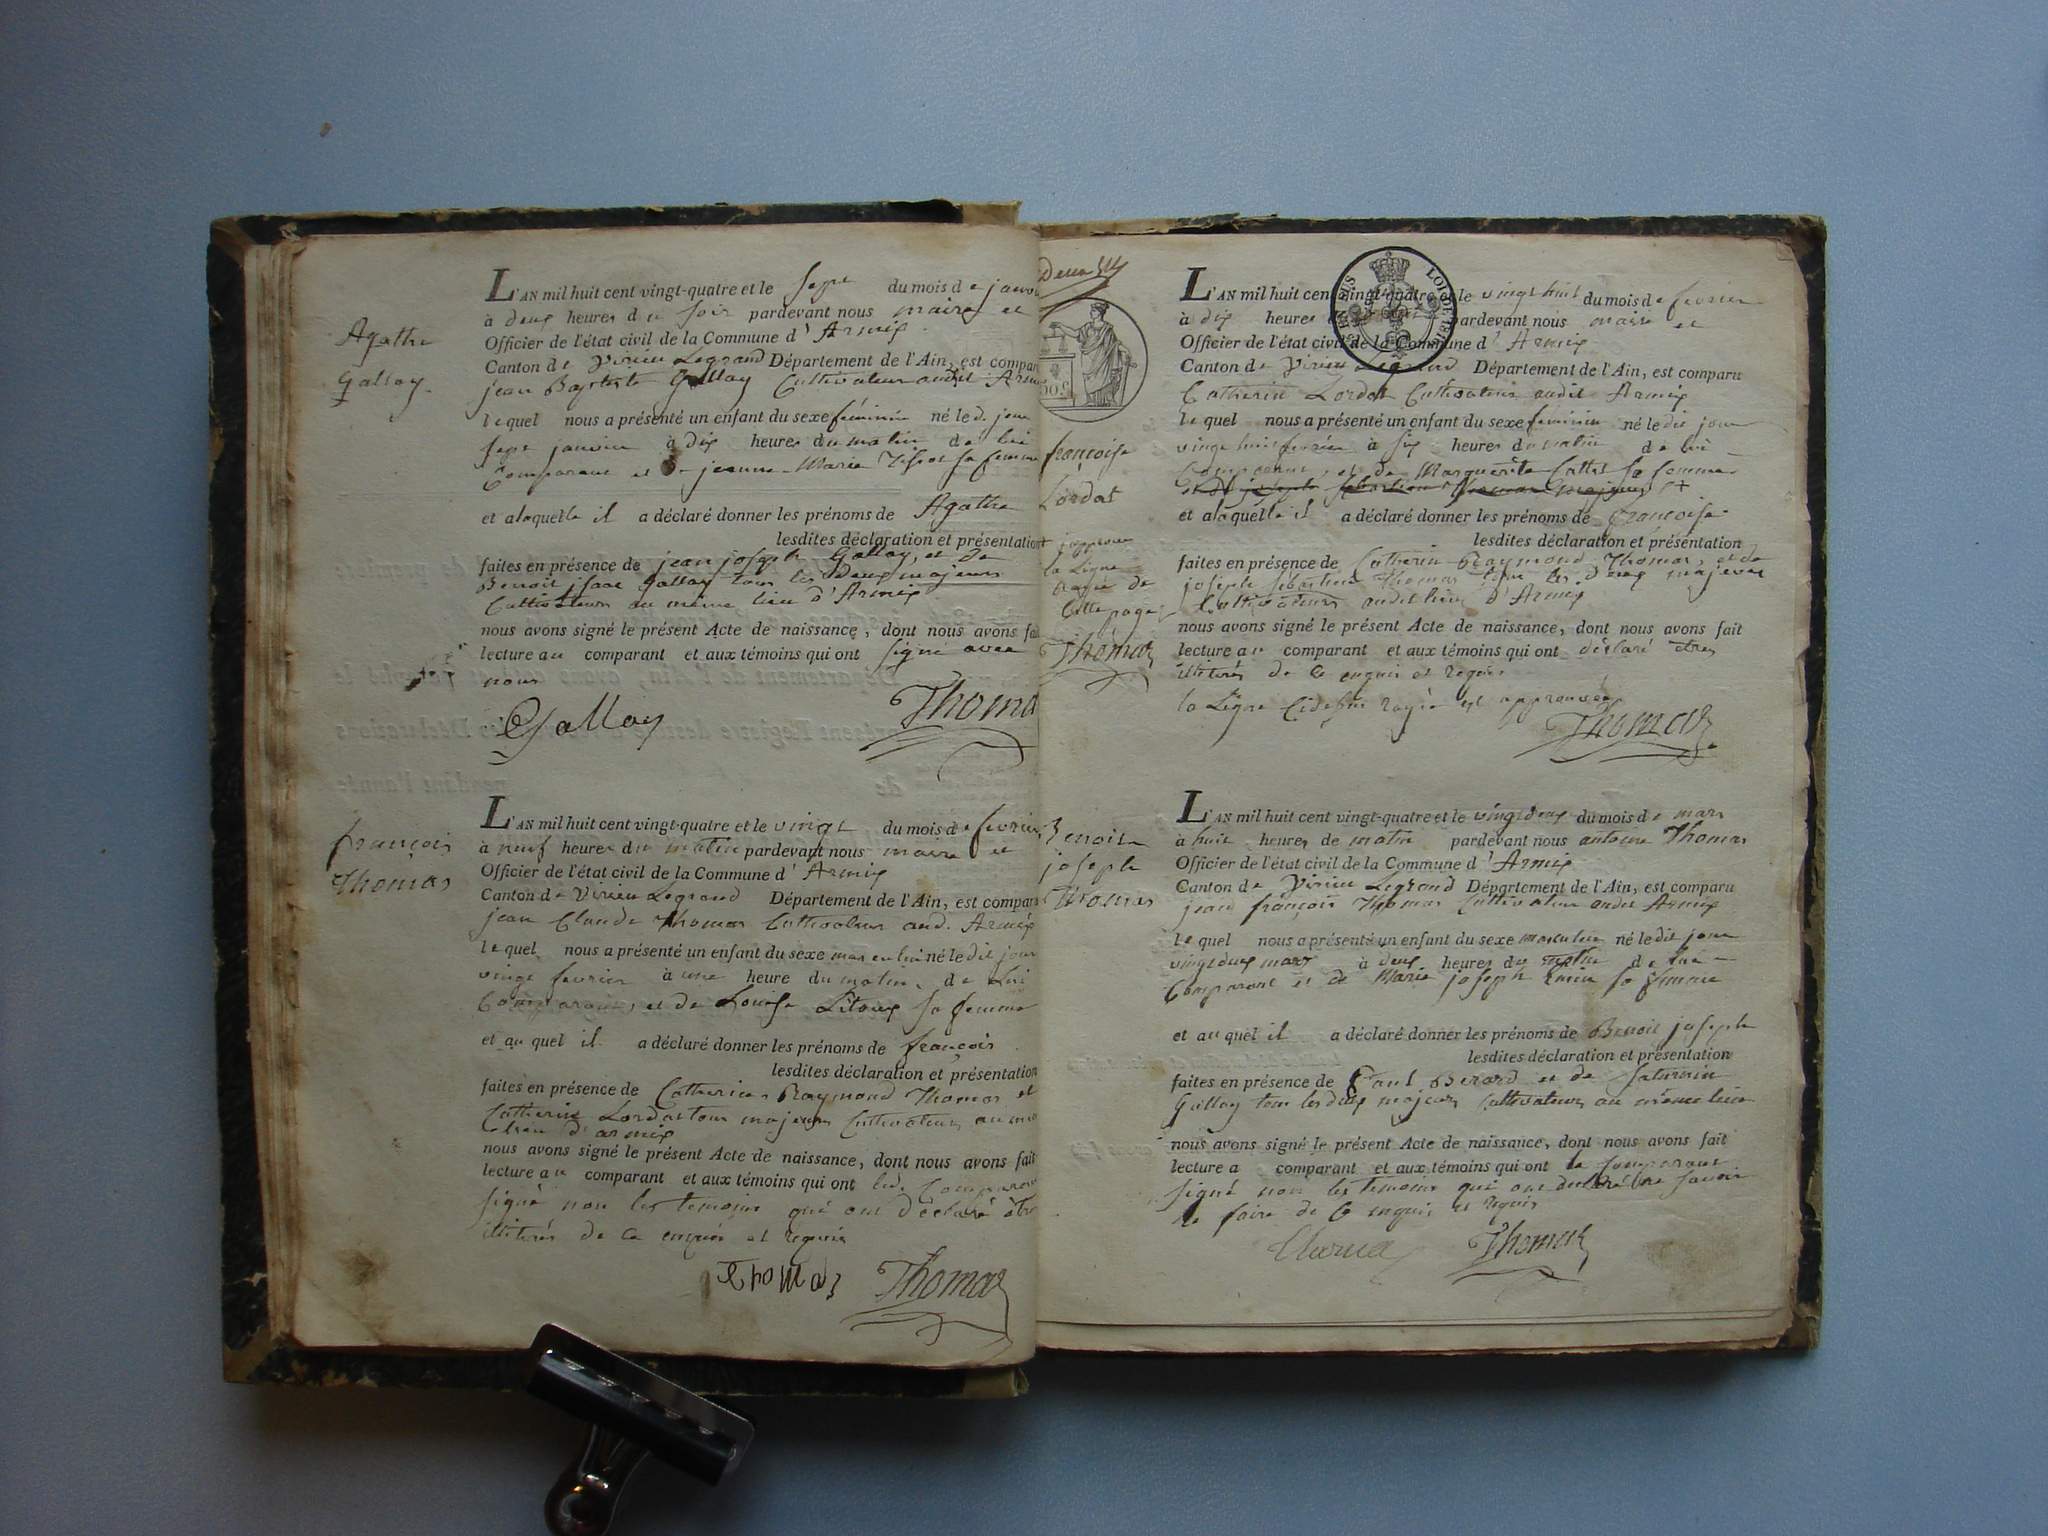 Agathe
Gallay
L'AN mil huit cent vingt-quatre et le sept du mois de janv
à deux heures du soir pardevant nous maire et
Officier de l'état civil de la Commune d'Armix
Canton de Virieu Legrand Département de l'Ain, est compar
jean Baptiste Gallay Cultivateur audit Arm
lequel nous a présenté un enfant du sexe féminin né le d. jour
sept janvier à dix heures du matin de lui
Comparant et de jeanne Marie Tissot sa femme
et alaquelle il a déclaré donner les prénoms de Agathe
lesdites déclaration et présentation
faites en présence de jean joseph Gallay, et de
Benoit isaac Gallay tous les deux majeurs
Cultivateurs au même lieu d'Armix
nous avons signé le présent Acte de naissance, dont nous avons fai
lecture au comparant et aux témoins qui ont signé avec
nous
Gallay Thoma
françois
Thomas
L'AN mil huit cent vingt-quatre et le vingt du mois de fevrier
à neuf heures du matin pardevant nous maire et
Officier de l'état civil de la Commune d'Armix
Canton de Virieu Legrand Département de l'Ain, est compar
jean Claude Thomas Cultivateur aud. Armix
lequel nous a présenté un enfant du sexe masculin né ledit jour
vingt fevrier à une heure du matin, de Lui
Comparant, et de Louise sa femme
et au quel il a déclaré donner les prénoms de françois
lesdites déclaration et présentation
faites en présence de Catherin Raymond Thomas et
Catherin Lordat tous majeurs Cultivateurs au me
lieu d'armix
nous avons signé le présent Acte de naissance, dont nous avons fait
lecture au comparant et aux témoins qui ont led. Comparant
signé non les temoins qui ont déclaré être
illiterés de ce enquis et requis
Thomas Thomas
deux
françoise
Lordat
japprouve
la Ligne
rayée de
Cette page
Thomas
L'AN mil huit cent vingt-quatre et le vingt huit du mois de fevrier
à dix heures pardevant nous maire et
Officier de l'état civil de la Commune d'Armix
Canton de Virieu Legrand Département de l'Ain, est comparu
Catherin Lordat Cultivateur audit Armix
lequel nous a présenté un enfant du sexe féminin né ledit jour
vingt huit fevrier à six heures du matin de lui
Comparant, et de Marguerite sa femme
et de joseph sebastien Thomas majeurs
et alaquelle il a déclaré donner les prénoms de françoise
lesdites déclaration et présentation
faites en présence de Catherin Raymond Thomas, et de
joseph sebastien Thomas tous les deux majeurs
Cultivateurs audit lieu d'Armix
nous avons signé le présent Acte de naissance, dont nous avons fait
lecture au comparant et aux témoins qui ont déclaré être
illiterés de ce enquis et requis
la Ligne Cidessus rayée est approuvée
Thomas
Benoit
joseph
Thomas
L'AN mil huit cent vingt-quatre et le vingt deux du mois de mars
à huit heures de matin pardevant nous antoine Thomas
Officier de l'état civil de la Commune d'Armix
Canton de Virieu Legrand Département de l'Ain, est comparu
jean françois Thomas Cultivateur audit Armix
lequel nous a présenté un enfant du sexe masculin né ledit jour
vingt deux mars à deux heures du matin de lui
Comparant et de Marie joseph sa femme
et au quel il a déclaré donner les prénoms de Benoit joseph
lesdites déclaration et présentation
faites en présence de Paul Berard et de Saturnin
Gallay tous les deux majeurs Cultivateurs au même lieu
nous avons signé le présent Acte de naissance, dont nous avons fait
lecture a comparant et aux témoins qui ont le Comparant
signé non les temoins qui ont declaré ne savoir
le faire de ce enquis et requis
Thomas